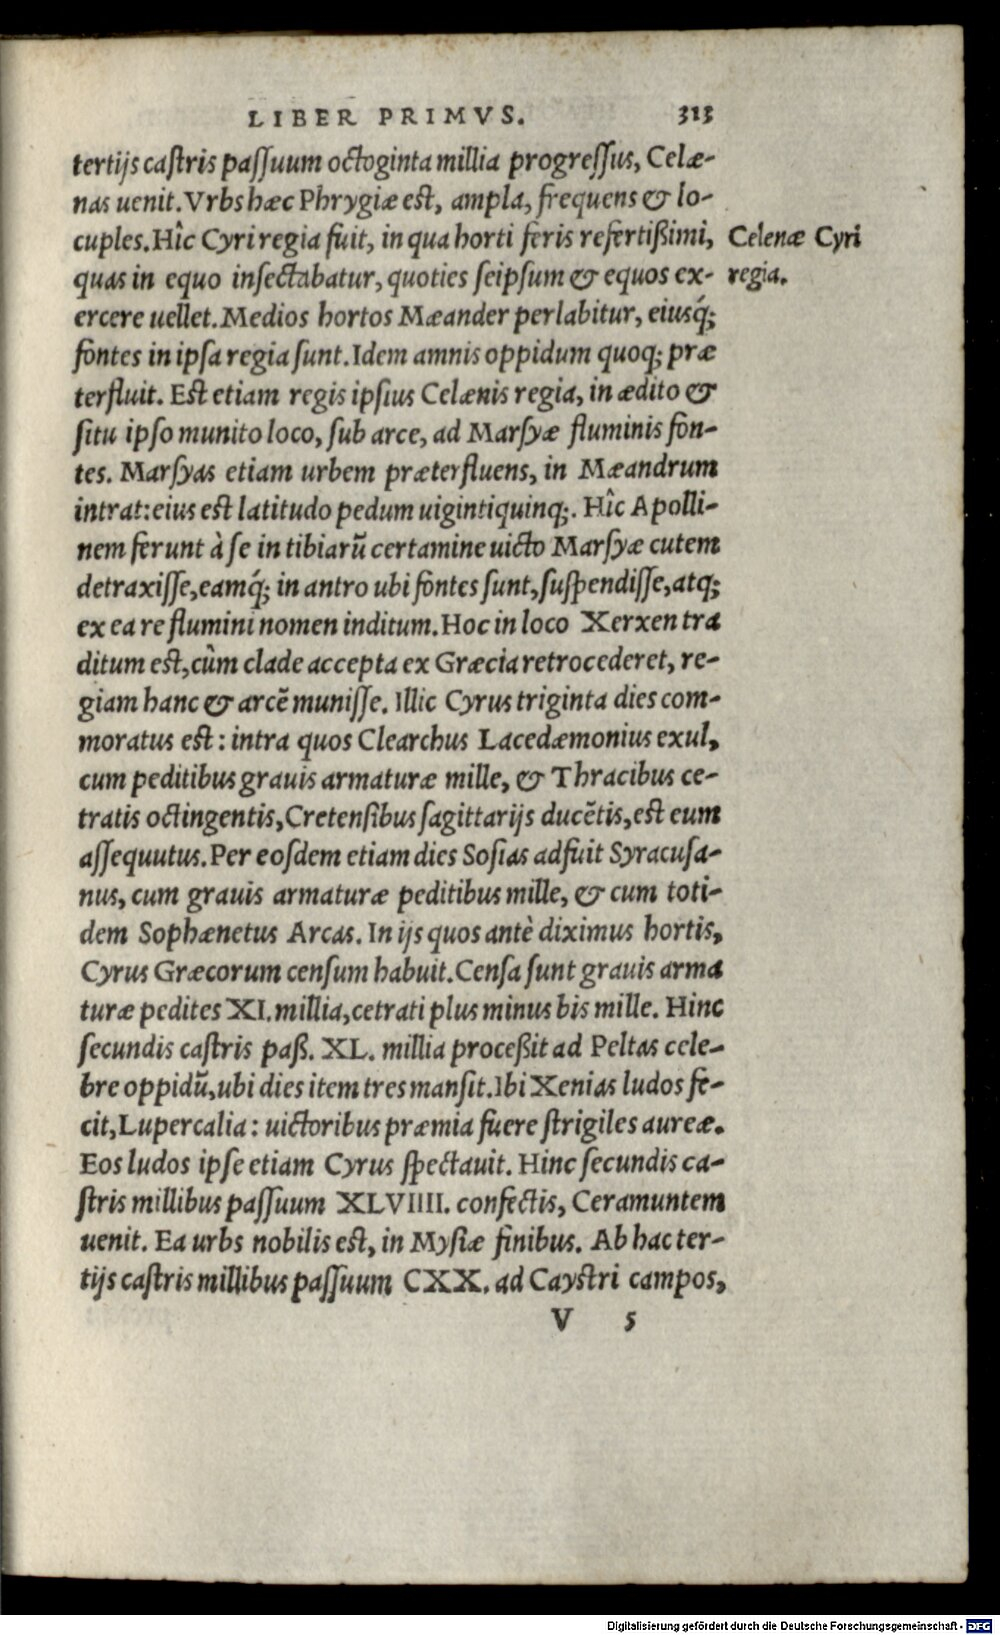 LIBER PRIMVS. 313
tertijs castris passuum octoginta millia progressus, Celæ-
nas uenit. Vrbs hæc Phrygiæ est, ampla, frequens & lo-
cuples. Hîc Cyri regia fuit, in qua horti feris refertißimi,
Celenæ Cyri
quas in equo insectabatur, quoties seipsum & equos ex-
regia.
ercere uellet. Medios hortos Mæander perlabitur, eiusq́;
fontes in ipsa regia sunt. Idem amnis oppidum quoq; præ
terfluit. Est etiam regis ipsius Celænis regia, in ædito &
situ ipso munito loco, sub arce, ad Marsyæ fluminis fon-
tes. Marsyas etiam urbem præterfluens, in Mæandrum
intrat: eius est latitudo pedum uigintiquinq;. Hîc Apolli-
nem ferunt à se in tibiarũ certamine uicto Marsyæ cutem
detraxisse, eamq́; in antro ubi fontes sunt, suspendisse, atq;
ex ea re flumini nomen inditum. Hoc in loco Xerxen tra
ditum est, cùm clade accepta ex Græcia retrocederet, re-
giam hanc & arcẽ munisse. Illic Cyrus triginta dies com-
moratus est: intra quos Clearchus Lacedæmonius exul,
cum peditibus grauis armaturæ mille, & Thracibus ce-
tratis octingentis, Cretensibus sagittarijs ducẽtis, est eum
assequutus. Per eosdem etiam dies Sosias adfuit Syracusa-
nus, cum grauis armaturæ peditibus mille, & cum toti-
dem Sophænetus Arcas. In ijs quos antè diximus hortis,
Cyrus Græcorum censum habuit. Censa sunt grauis arma
turæ pedites XI. millia, cetrati plus minus bis mille. Hinc
secundis castris paß. XL. millia proceßit ad Peltas cele-
bre oppidũ, ubi dies item tres mansit. Ibi Xenias ludos fe-
cit, Lupercalia: uictoribus præmia fuere strigiles aureæ.
Eos ludos ipse etiam Cyrus spectauit. Hinc secundis ca-
stris millibus passuum XLVIIII. confectis, Ceramuntem
uenit. Ea urbs nobilis est, in Mysiæ finibus. Ab hac ter-
tijs castris millibus passuum CXX. ad Caystri campos,
V 5
Digitalisierung gefördert durch die Deutsche Forschungsgemeinschaft - DFG